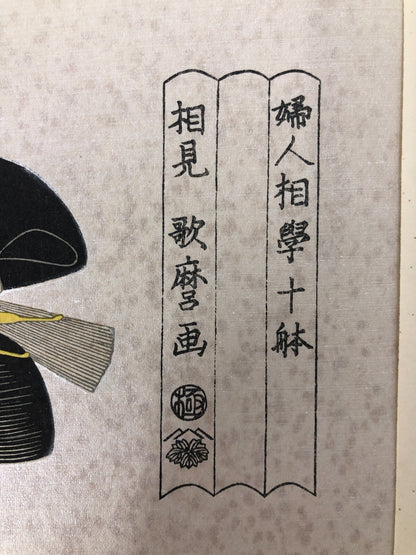 婦人相學十躰
相見 歌麿画
極